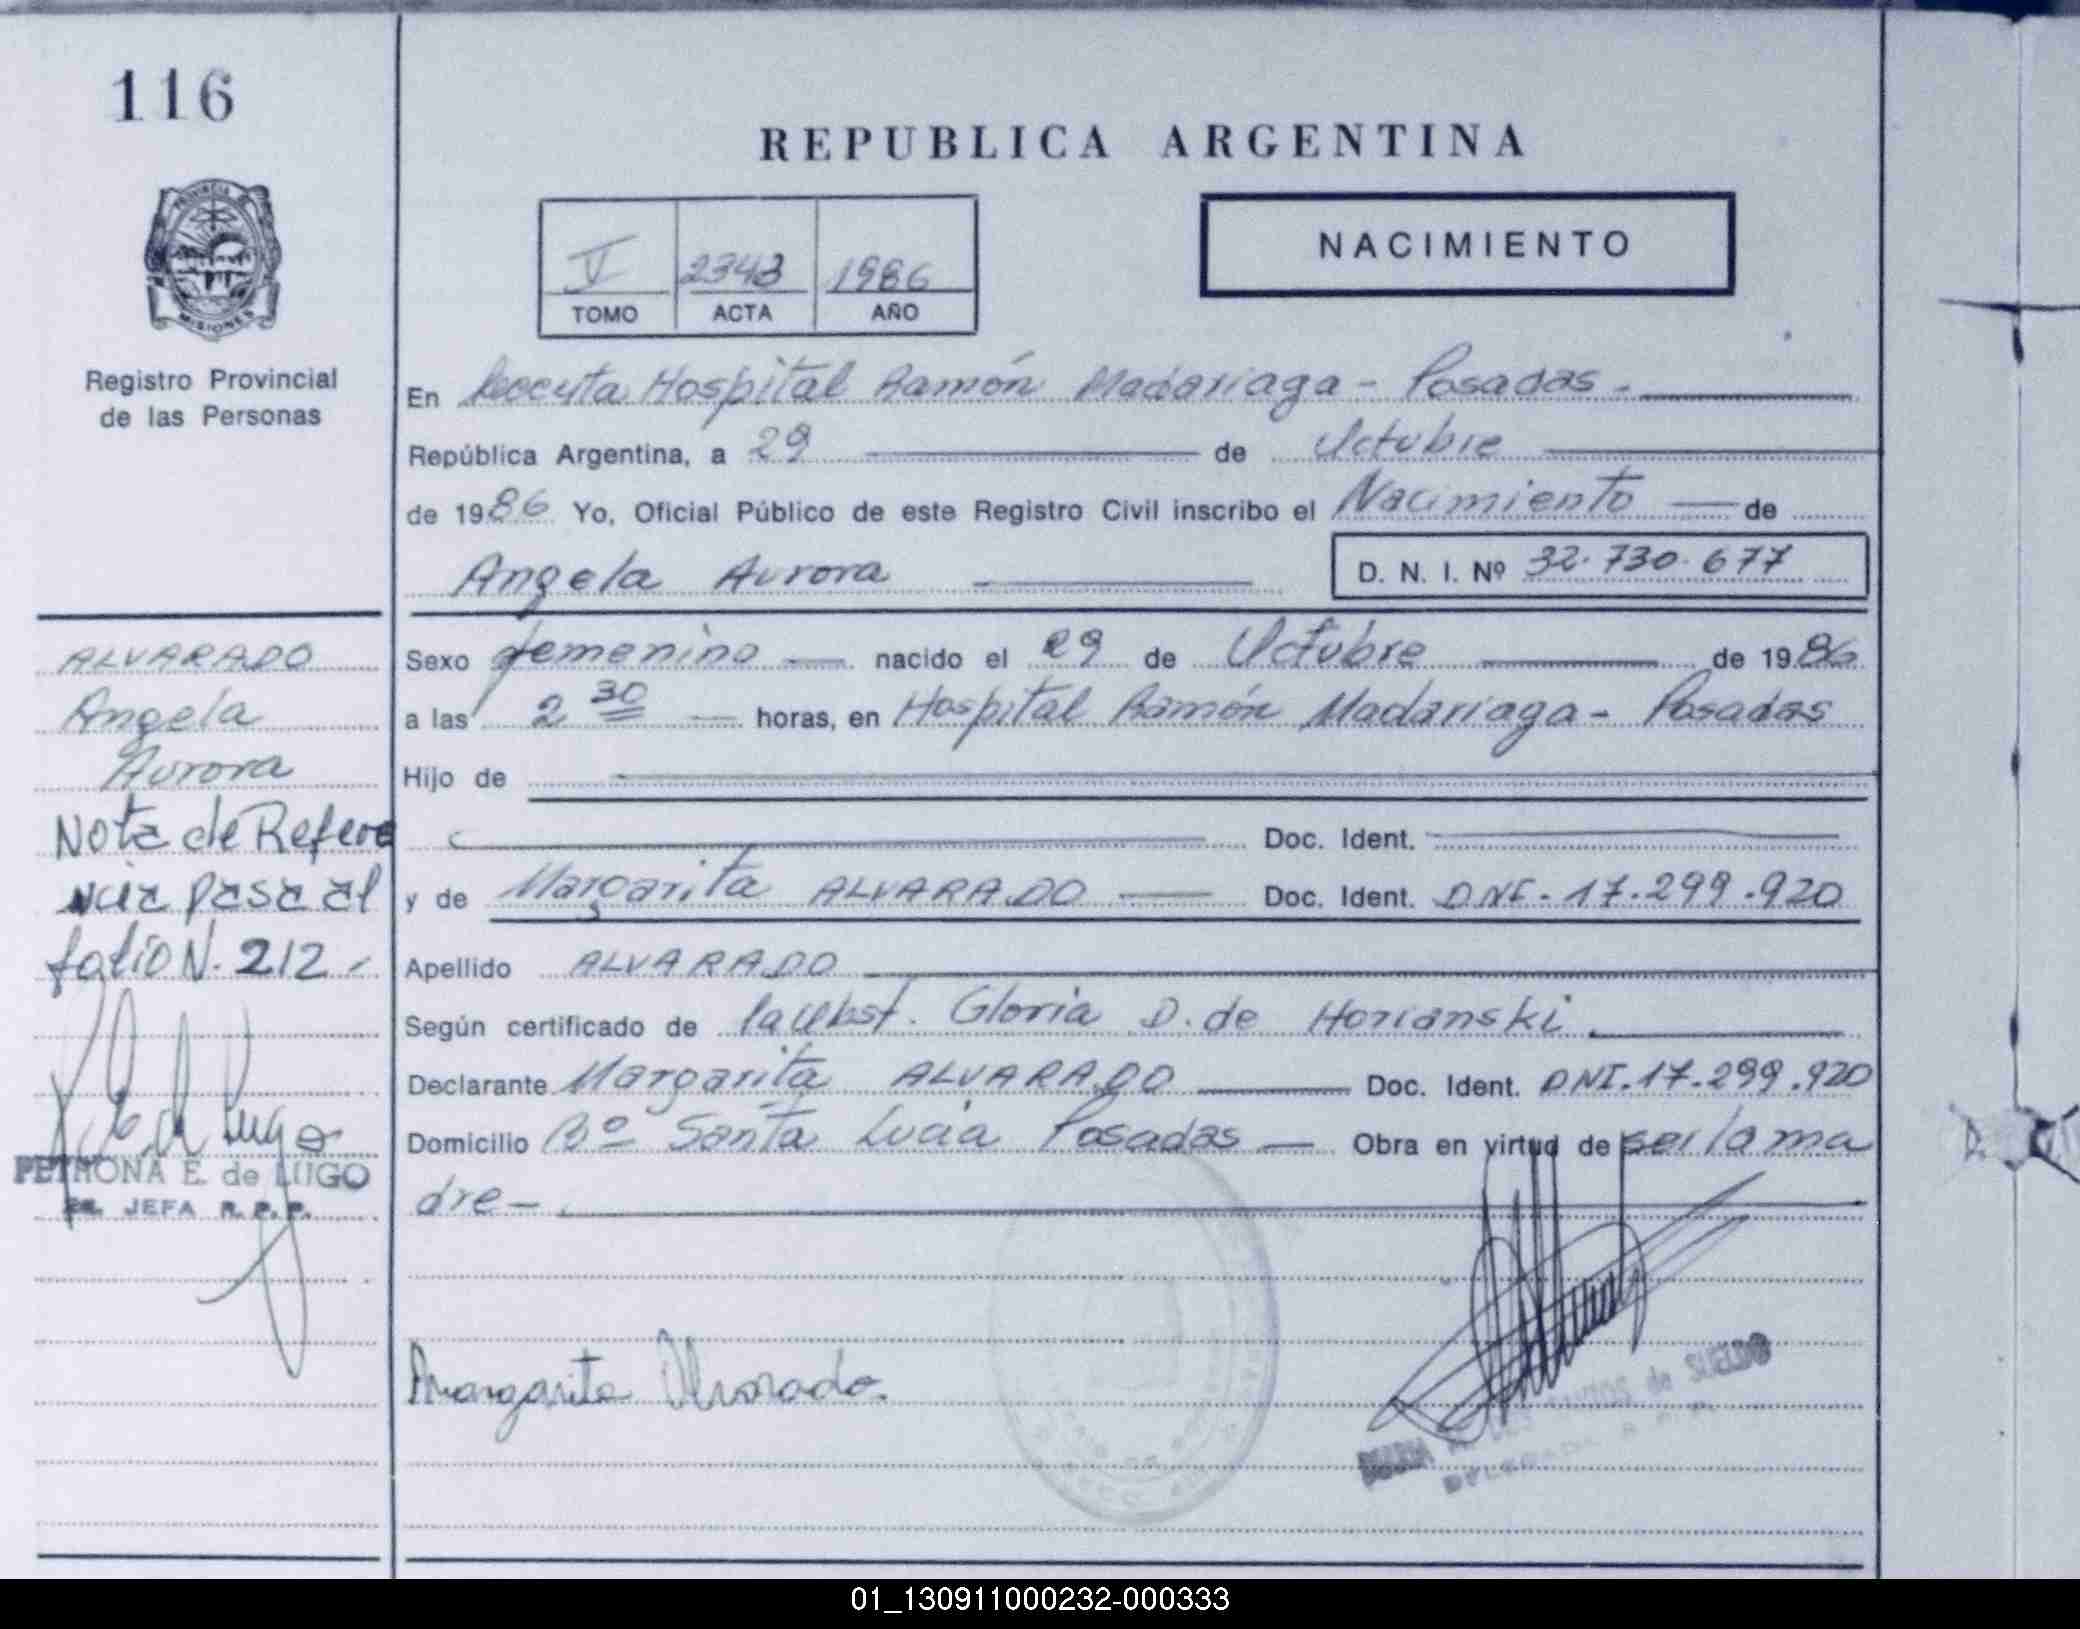 116
REPUBLICA ARGENTINA
PROVINCIA
MISIONES
Registro Provincial
de las Personas
V 2343 1986
TOMO ACTA AÑO
NACIMIENTO
En Hospital Ramón Madariaga - Posadas -
República Argentina, a 29 de Octubre
de 1986 Yo, Oficial Público de este Registro Civil inscribo el Nacimiento de
Angela Aurora D. N. I. Nº 32.730.677
Sexo femenino nacido el 29 de Octubre de 1986
a las 2 30 horas, en Hospital Ramón Madariaga - Posadas
Hijo de
Doc. Ident.
y de Margarita ALVARADO Doc. Ident. DNI - 17.299.920
Apellido ALVARADO
Según certificado de la Obst. Gloria D. de Horianski
Declarante Margarita ALVARADO Doc. Ident. DNI. 17.299.920
Domicilio Bº Santa Lucia Posadas Obra en virtud de ser la ma
dre -
Margarita Alvarado.
ALVARADO
Angela
Aurora
Nota de Refere
ncia pasa al
folio N. 212 -
PETRONA E. de LUGO
JEFA R. P. P.
01_130911000232-000333